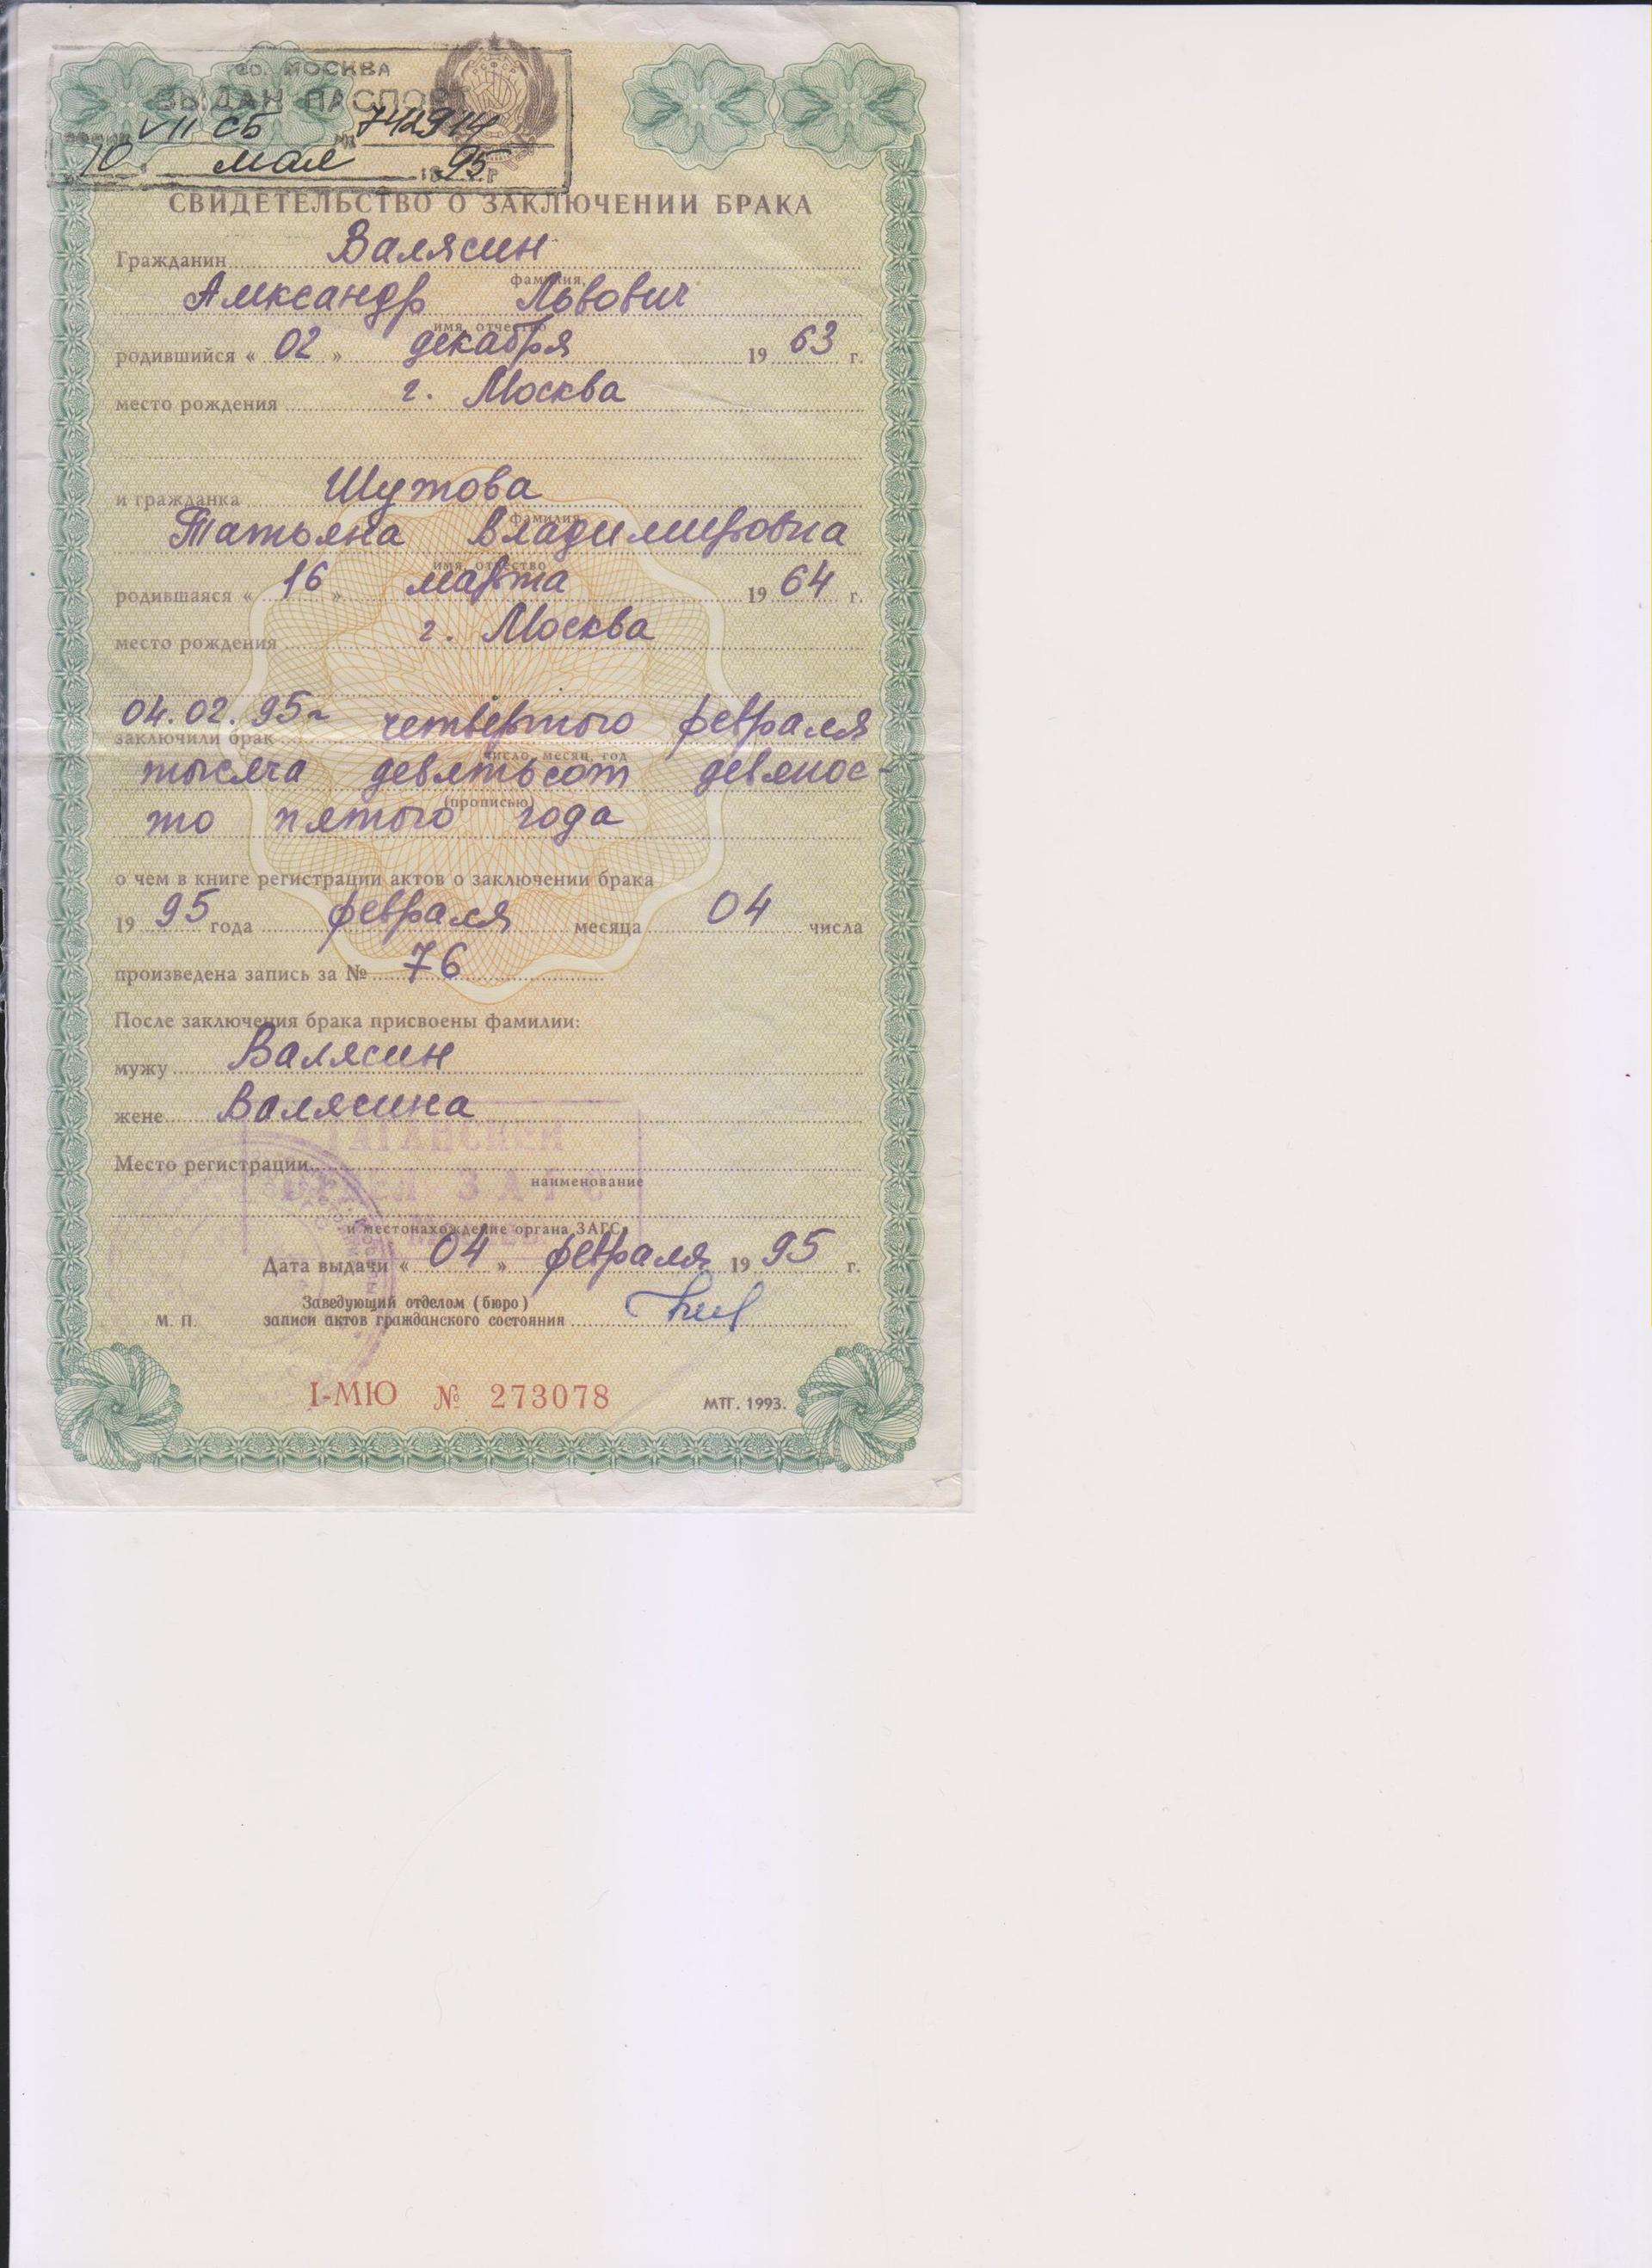 гор. МОСКВА
ВЫДАН ПАСПОРТ
VII СБ № 742914
10 мая 1995 г
СВИДЕТЕЛЬСТВО О ЗАКЛЮЧЕНИИ БРАКА
Гражданин Валясин
фамилия,
Александр Львович
имя, отчество
родившийся « 02 » декабря 19 63 г.
место рождения г. Москва
и гражданка Шутова
фамилия
Татьяна Владимировна
имя, отчество
родившаяся « 16 » марта 19 64 г.
место рождения г. Москва
04.02.95г четвертого февраля
заключили брак
число, месяц, год
тысяча девятьсот девянос-
(прописью)
то пятого года
о чем в книге регистрации актов о заключении брака
19 95 года февраля месяца 04 числа
произведена запись за № 76
После заключения брака присвоены фамилии:
мужу Валясин
жене Валясина
ТАГАНСКИЙ
Место регистрации
ОТДЕЛ ЗАГС
наименование
и местонахождение органа ЗАГС
Дата выдачи « 04 » февраля 19 95 г.
Заведующий отделом (бюро)
М. П. записи актов гражданского состояния
I-МЮ № 273078
МТГ. 1993.